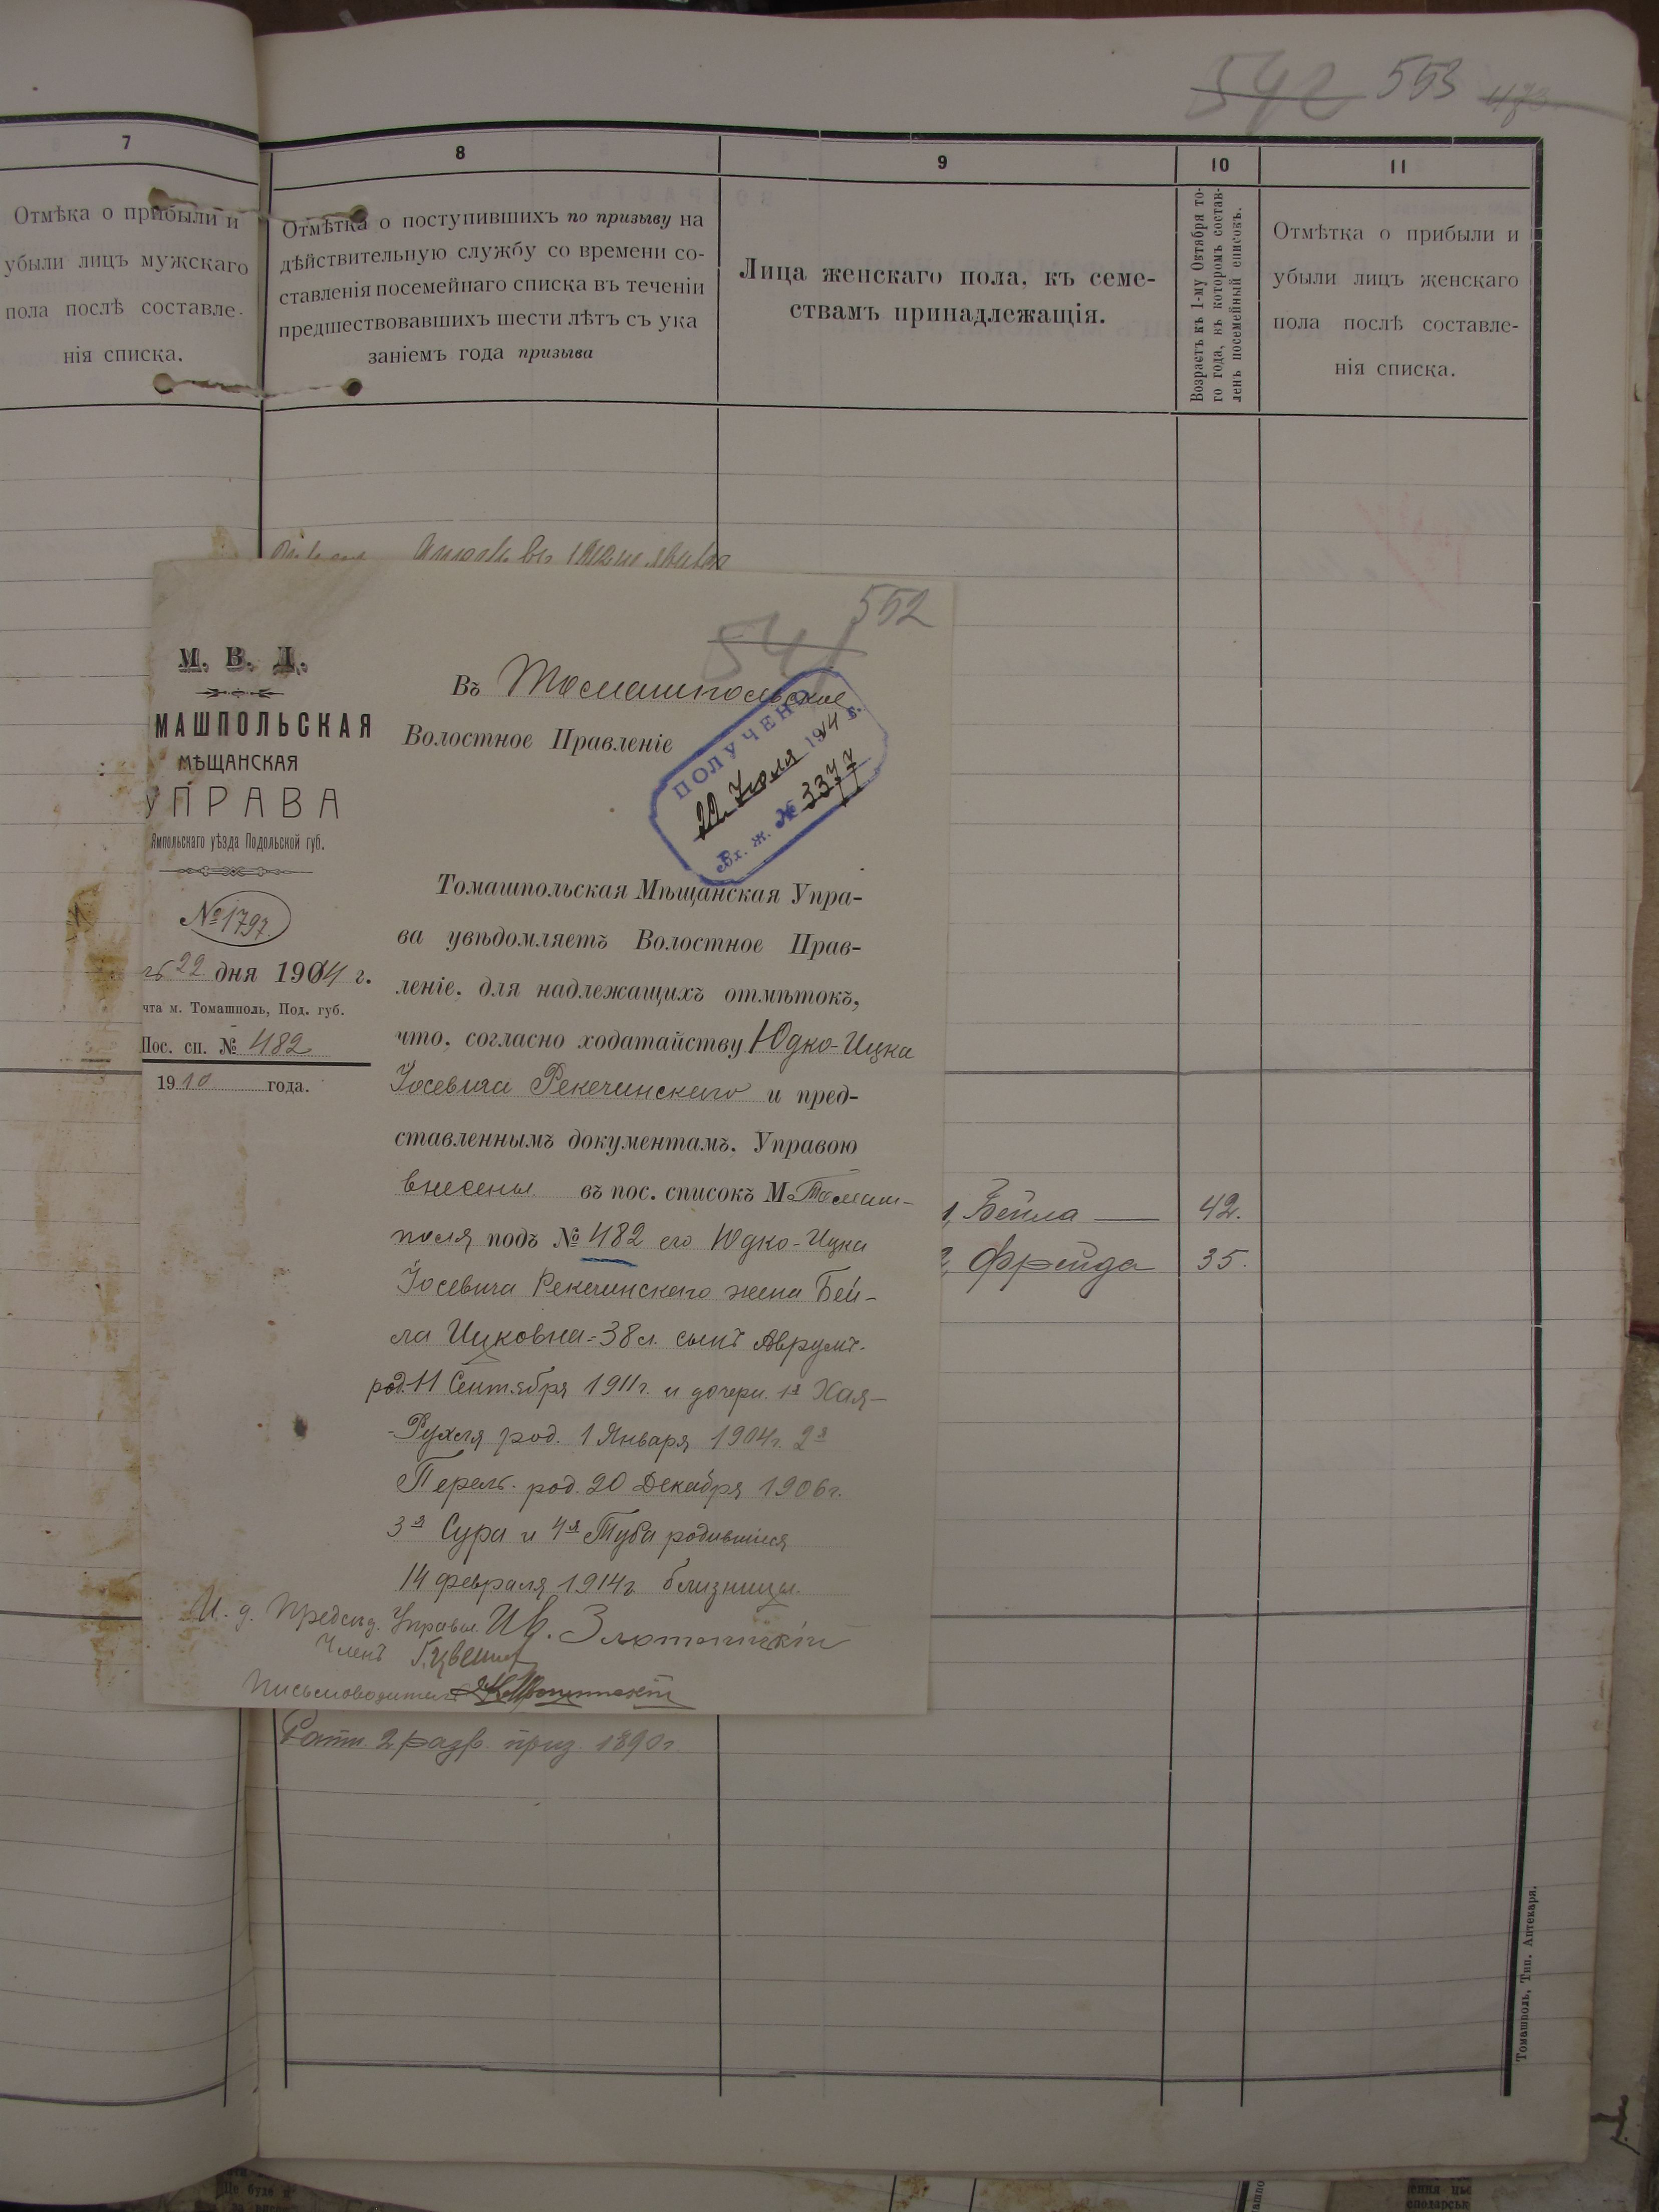 542 553 473
7
Отмѣка о прибыли и
убыли лицъ мужскаго
пола послѣ составле-
нія списка.
8
Отмѣтка о поступившихъ по призыву на
дѣйствительную службу со времени со-
ставленія посемейнаго списка въ теченіи
предшествовавшихъ шести лѣтъ съ ука
заніемъ года призыва
9
Лица женскаго пола, къ семе-
ствамъ принадлежащія.
10
Возрастъ къ 1-му Октября то-
го года, въ которомъ состав-
ленъ посемейный списокъ.
11
Отмѣтка о прибыли и
убыли лицъ женскаго
пола послѣ составле-
нія списка.
552
541
М. В. Д.
МАШПОЛЬСКАЯ
МѢЩАНСКАЯ
УПРАВА
Ямпольскаго уѣзда Подольской губ.
№ 1797.
22 дня 1914 г.
чта м. Томашполь, Под. губ.
Пос. сп. № 482
1910 года.
Въ Томашпольское
Волостное Правленіе
ПОЛУЧЕНО
22 Іюля 1914 г.
Вх. ж. № 3377
Томашпольская Мѣщанская Упра-
ва увѣдомляетъ Волостное Прав-
леніе, для надлежащихъ отмѣтокъ,
что, согласно ходатайству Юдко-Ицка
Іосевича Рекечинскаго и пред-
ставленнымъ документамъ, Управою
внесены въ пос. списокъ М. Томаш-
поля подъ № 482 его Юдко-Ицка
Іосевича Рекечинскаго жена Бей-
ла Ицковна-38 л. сынъ Аврумъ.
род. 11 Сентября 1911г. и дочери. 1я Хая-
-Рухля род. 1 Января 1904г. 2я
Перель. род. 20 Декабря 1906г.
3я Сура и 4я Туба родившіяся
14 февраля 1914г. близнецы.
И. д. Предсѣд. Управы Ив.
Членъ
Письмоводитель
1, Бейла — 42.
2, Фрейда 35.
Ратн. 2 разр. приз. 1890г.
Томашполь, Тип. Аптекаря.